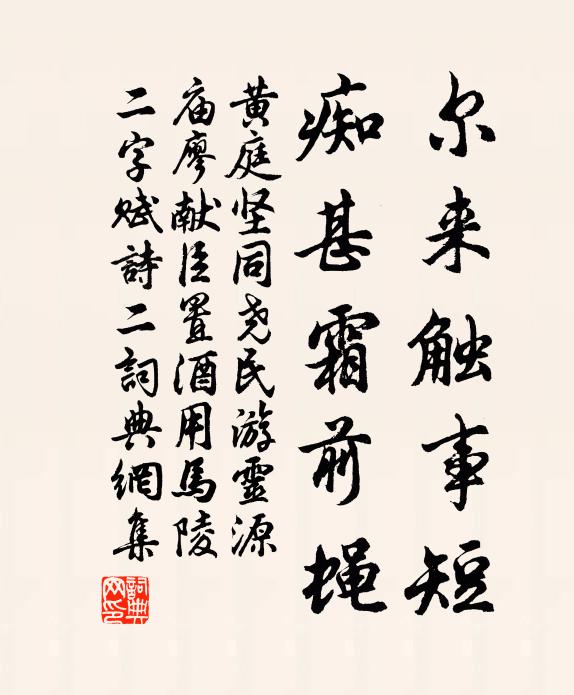 尔来触事短
痴甚霜前蝇
黄庭坚同尧民游靈源
庙廖献臣置酒用馬陵
二字赋詩二詞典網集
詞典网印